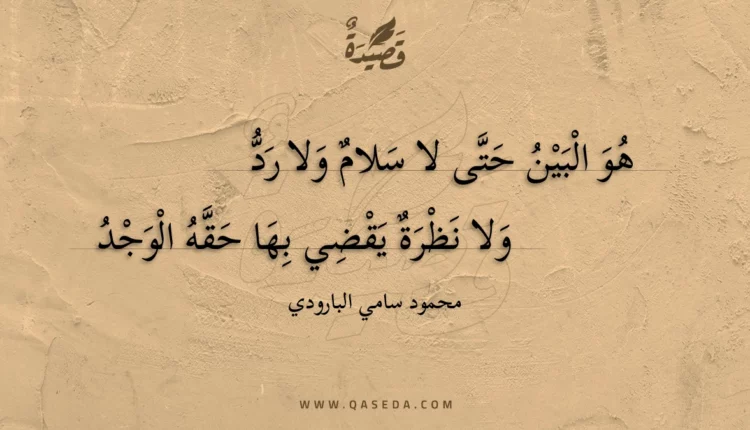 قَصِيدَةٌ
هُوَ الْبَيْنُ حَتَّى لا سَلامٌ وَلا رَدُّ
وَلا نَظْرَةٌ يَقْضِي بِهَا حَقَّهُ الْوَجْدُ
محمود سامي البارودي
WWW.QASEDA.COM